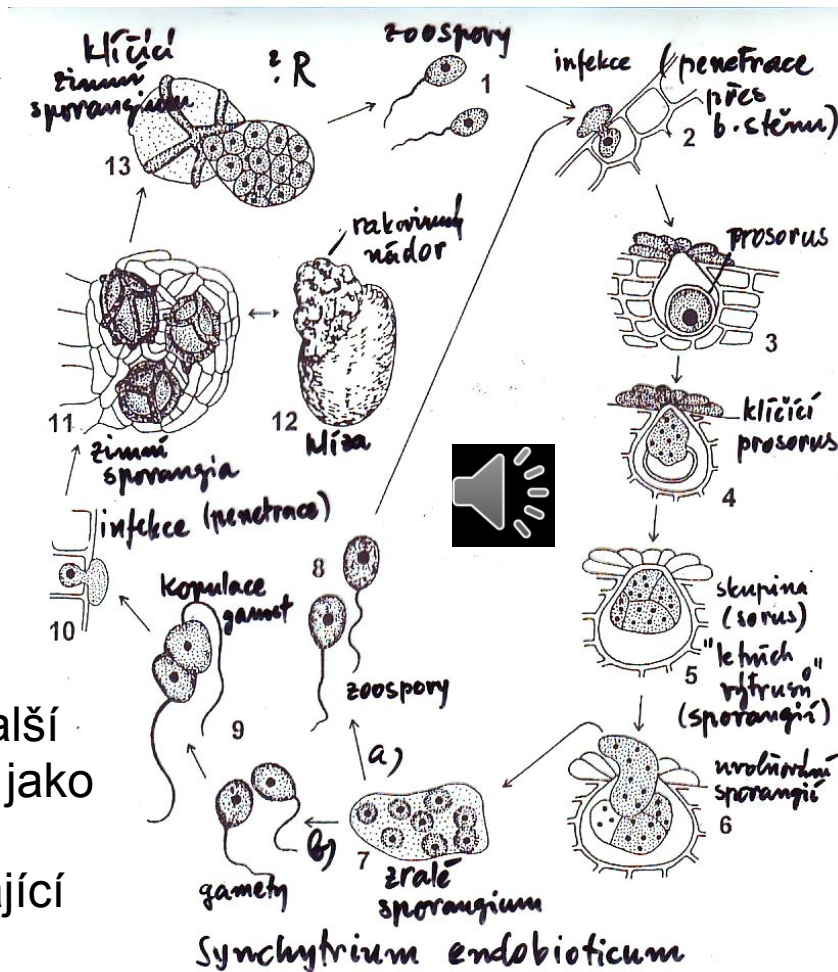 klíčící
zimní
sporangium
? R
13
zoospory
1
infekce (penetrace
přes
b. stěnu)
2
prosorus
3
klíčící
prosorus
4
skupina
(sorus)
5 "letních
výtrusů"
(sporangií)
uvolňování
sporangií
6
7
zralé
sporangium
a)
b)
zoospory
8
gamety
kopulace
gamet
9
infekce (penetrace)
10
11
zimní
sporangia
rakovinný
nádor
12
hlíza
alší
jako
jící
Synchytrium endobioticum